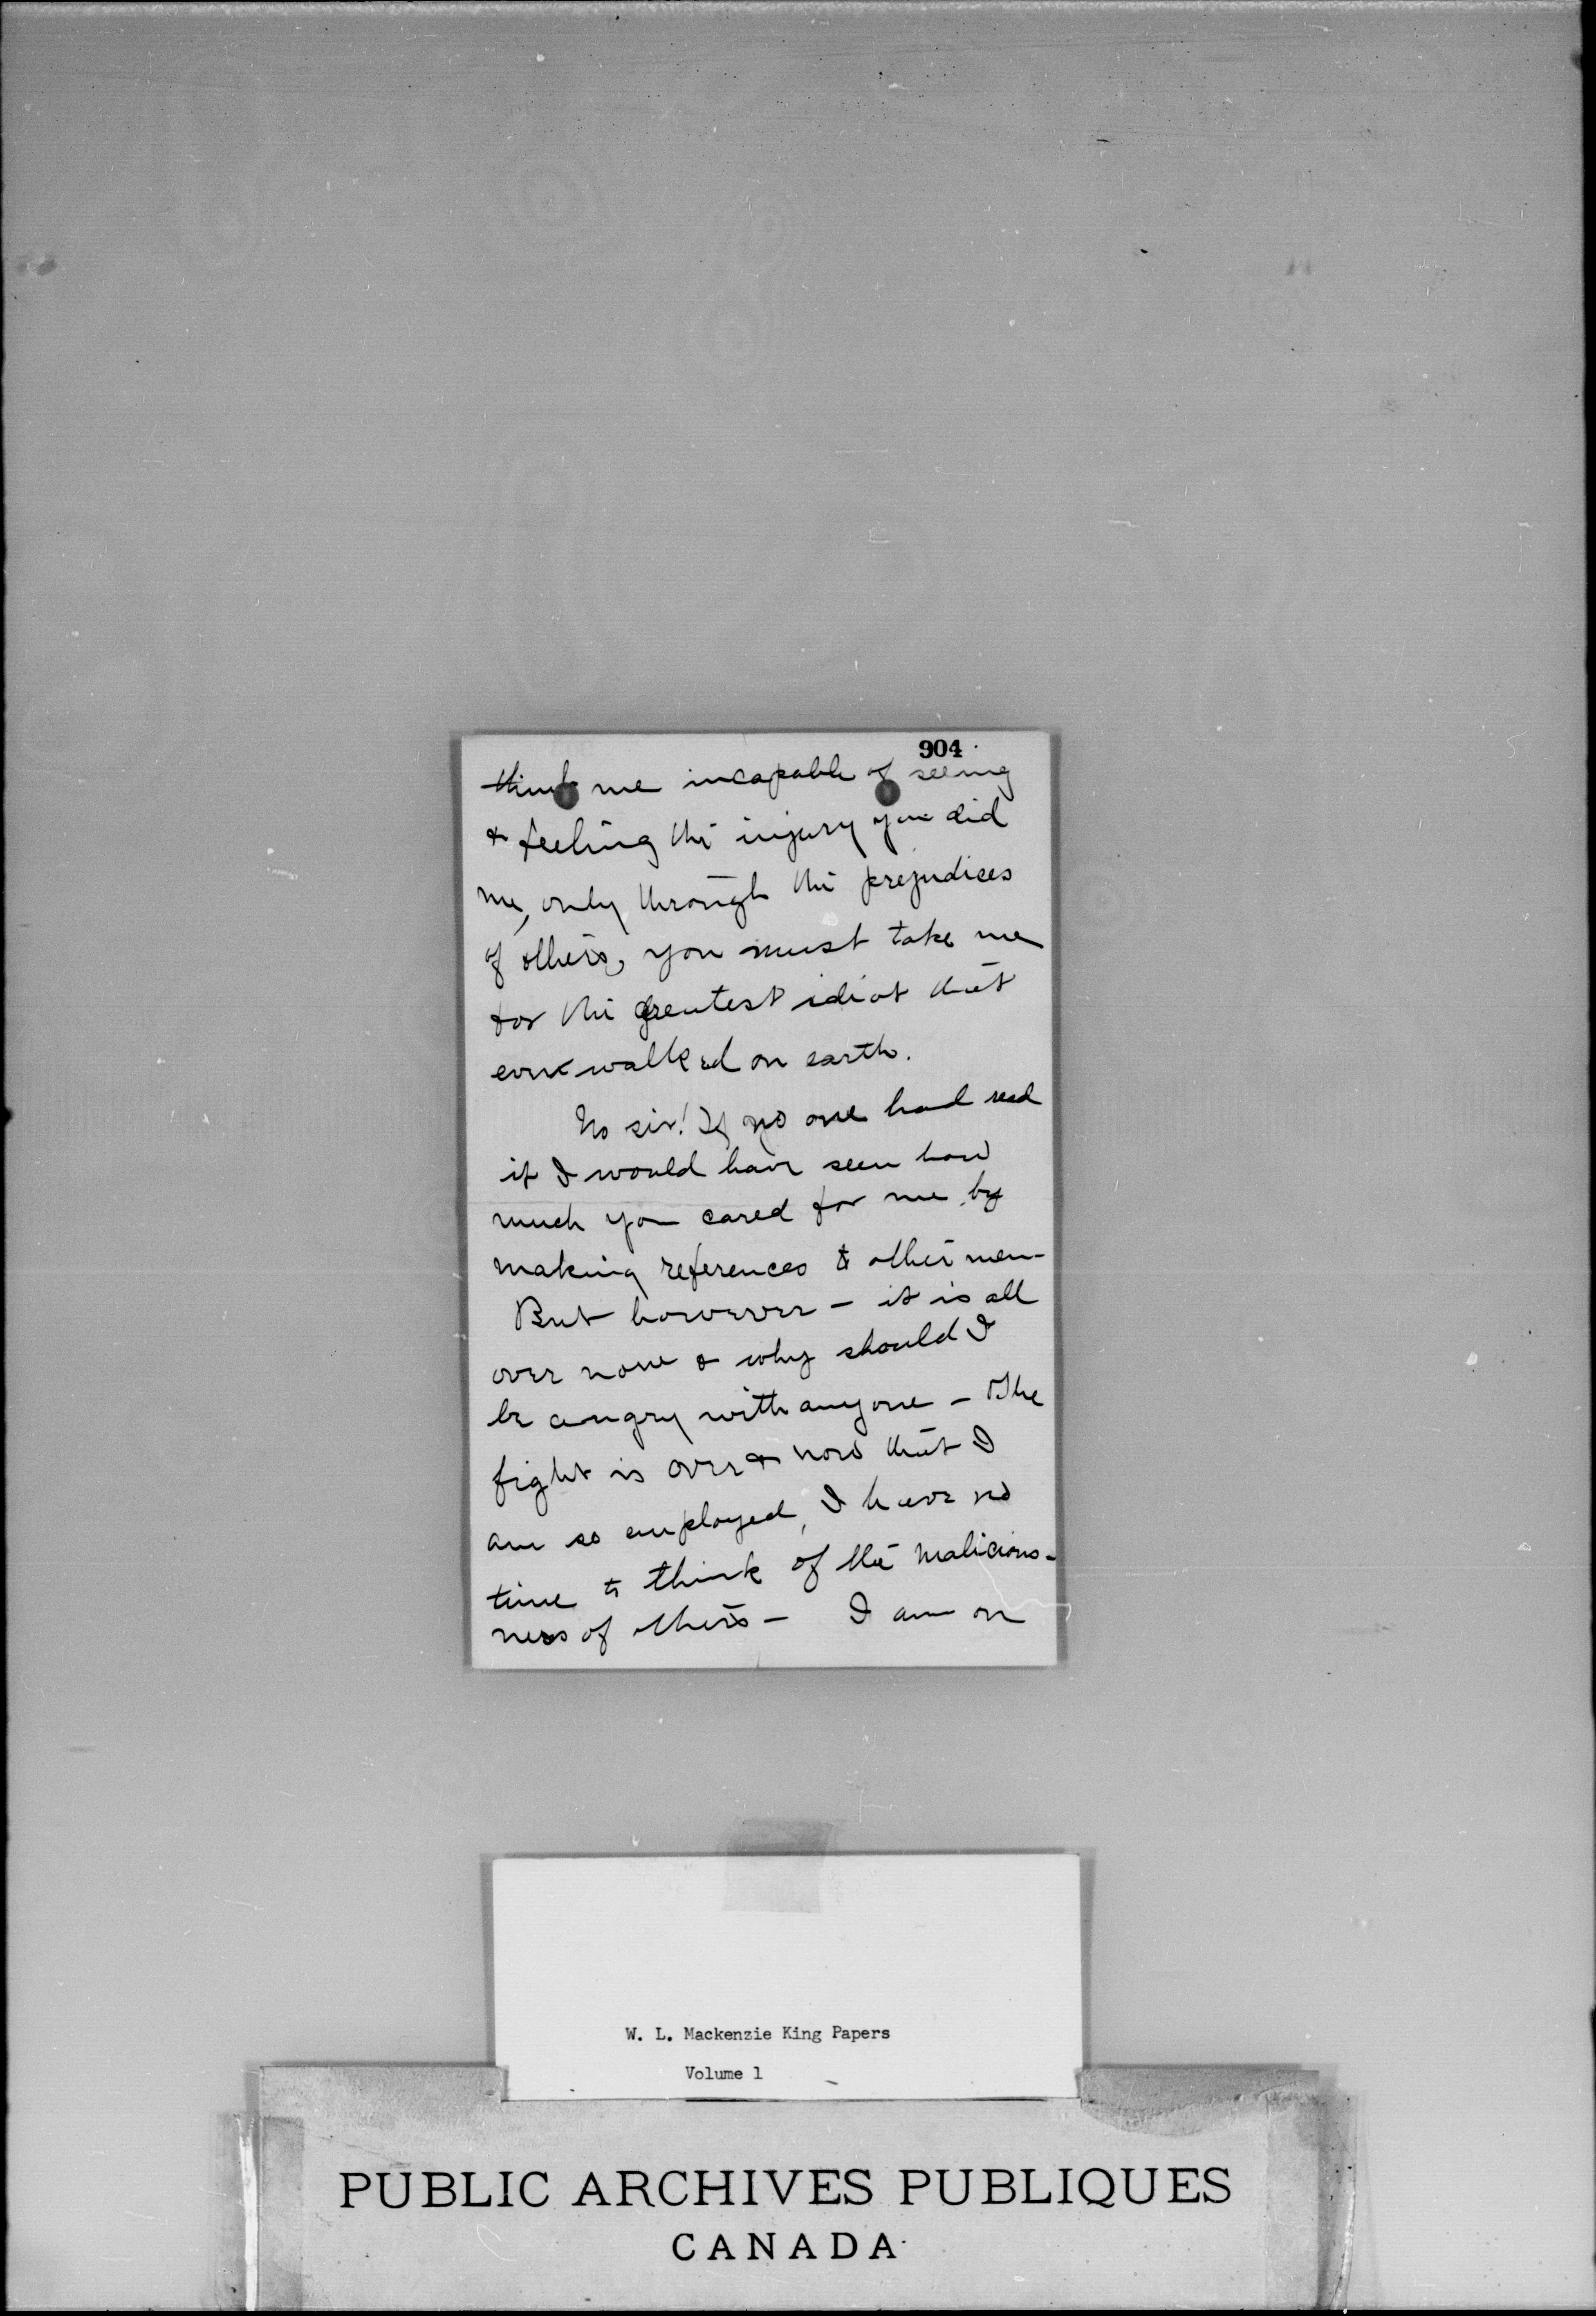 904
think me incapable of seeing
& feeling the injury you did
me, only through the prejudices
of others, you must take me
for the greatest idiot that
ever walked on earth.
No sir! If no one had read
it I would have seen how
much you cared for me by
making references to other men—
But however — it is all
over now & why should I
be angry with anyone — The
fight is over & now that I
am so employed, I have no
time to think of the malicious-
ness of others — I am on
W. L. Mackenzie King Papers
Volume 1
PUBLIC ARCHIVES PUBLIQUES
CANADA